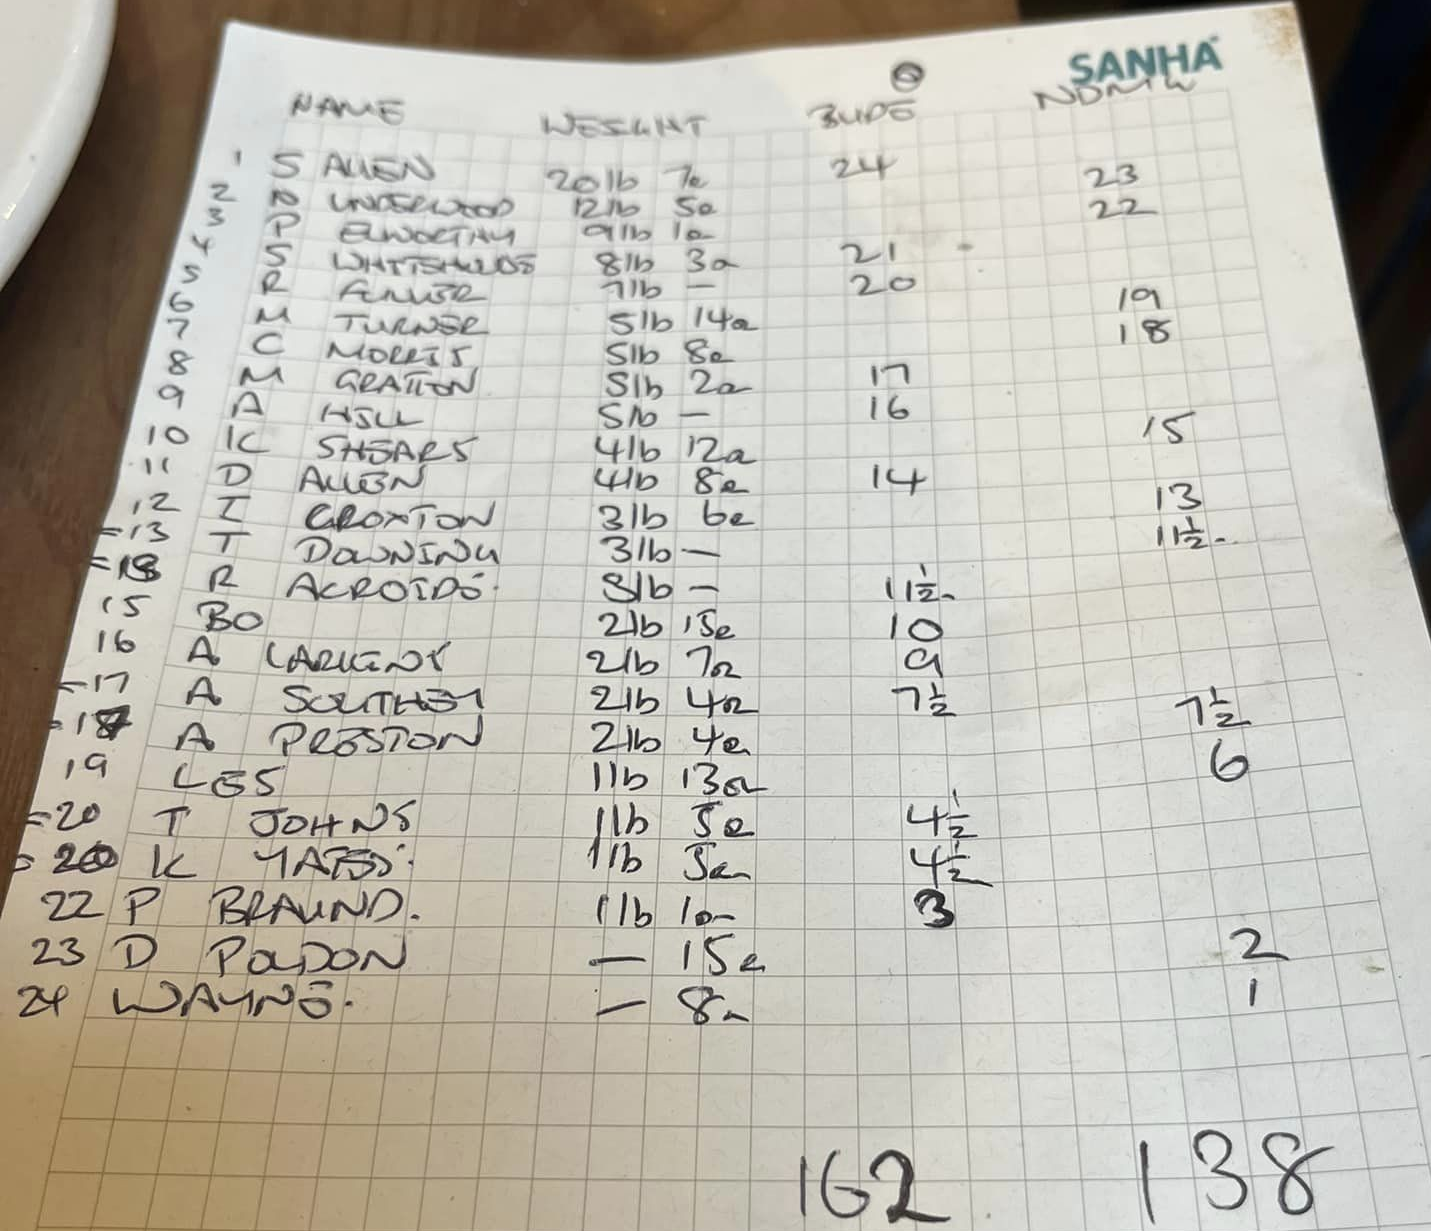 SANHA
NAME WEIGHT BUDE NDMW
1 S ALLEN 20lb 7o 24
2 D UNDERWOOD 12lb 5o 23
3 P ELWORTHY 9lb 1o 22
4 S WHITEHEADS 8lb 3o 21
5 R 7lb — 20
6 M TURNER 5lb 14o 19
7 C MORRIS 5lb 8o 18
8 M GRATTON 5lb 2o 17
9 A HILL 5lb — 16
10 K SHEARS 4lb 12o 15
11 D ALLEN 4lb 8o 14
12 I CROXTON 3lb 6o 13
=13 T DOWNING 3lb — 11½
=13 R ACROIDS. 3lb — 11½
15 BO 2lb 15o 10
16 A LARKINS 2lb 7o 9
=17 A SOUTHEY 2lb 4o 7½
=17 A PRESTON 2lb 4o 7½
19 LES 1lb 13o 6
=20 T JOHNS 1lb 5o 4½
=20 K YATES. 1lb 5o 4½
22 P BRAUND. 1lb 1o 3
23 D POLDON — 15o 2
24 WAYNE. — 8o 1
162 138